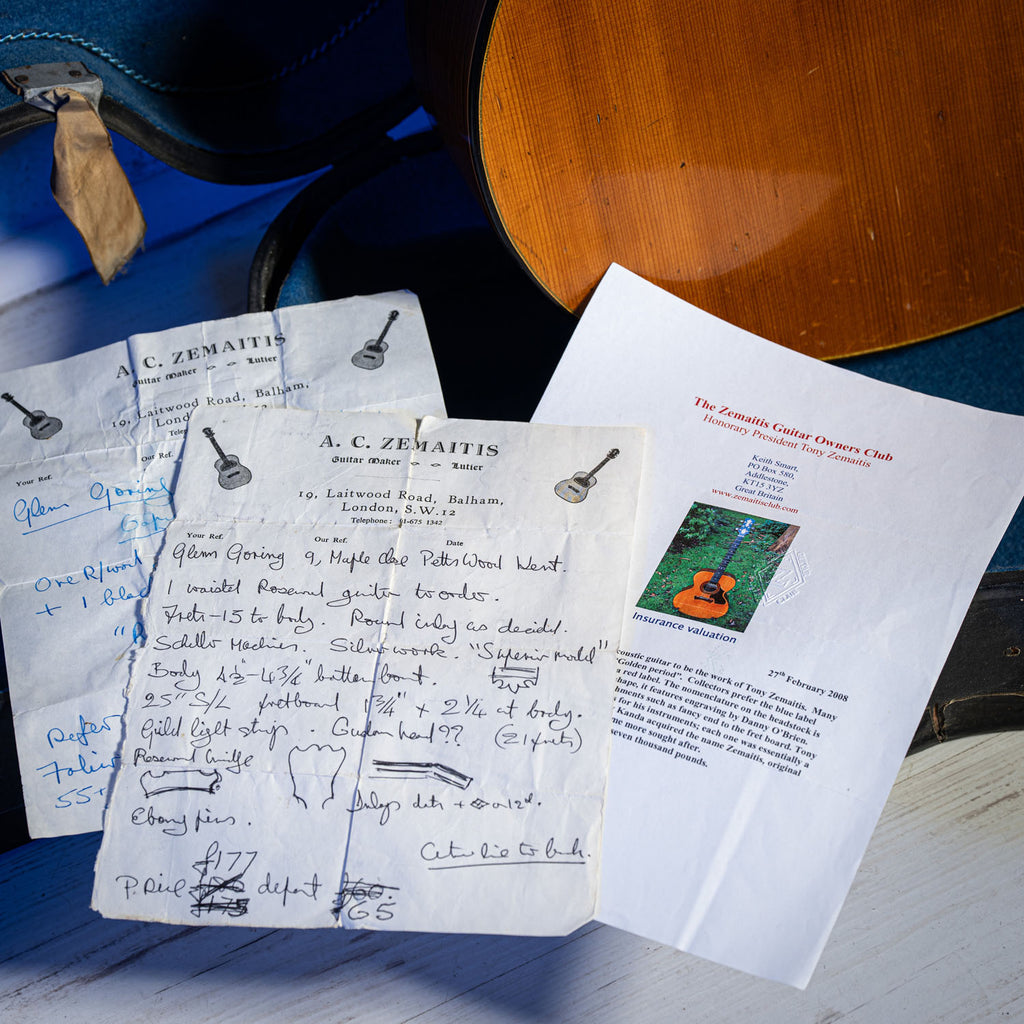 A. C. ZEMAITIS
Guitar Maker Lutier
19, Laitwood Road, Balham,
Lond
Telep
Your Ref.
Our Ref.
Glenn Goring
One R/wood
+ 1 blac
Refer
55+
A. C. ZEMAITIS
Guitar Maker Lutier
19, Laitwood Road, Balham,
London, S.W.12
Telephone: 01-675 1342
Your Ref. Our Ref. Date
Glenn Goring 9, Maple Close Petts Wood Kent.
1 waisted Rosewood guitar to order.
Frets-15 to body. Round inlay as decided.
Schaller Machines. Silverwork. "Superior model"
Body 4½"-4¾" butter bout.
25" S/L fretboard 1¾" + 2¼ at body.
Guild light strings. head?? (21 frets)
Rosewood bridge
Inlays dots + on 12th.
Ebony pins.
to back.
£177
P. Price deposit
£175
£60.
65
The Zemaitis Guitar Owners Club
Honorary President Tony Zemaitis
Keith Smart,
PO Box 580,
Addlestone,
KT15 3YZ
Great Britain
www.zemaitisclub.com
Insurance valuation
27th February 2008
coustic guitar to be the work of Tony Zemaitis. Many
"Golden period". Collectors prefer the blue label
a red label. The nomenclature on the headstock is
hape, it features engraving by Danny O'Brien.
hments such as fancy end to the fret board. Tony
for his instruments; each one was essentially a
Kanda acquired the name Zemaitis, original
me more sought after.
seven thousand pounds.